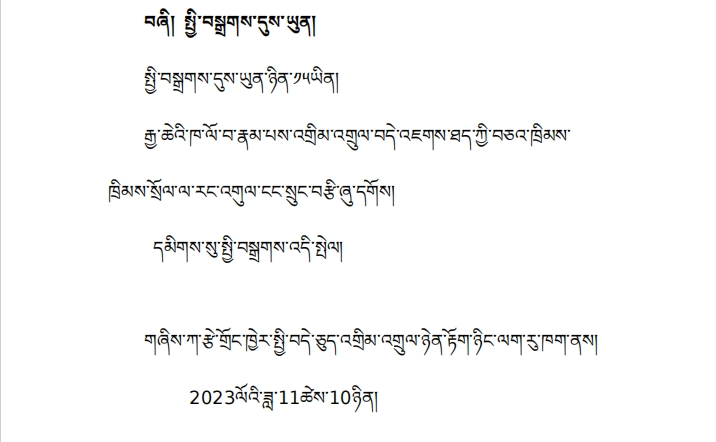 བཞི། སྤྱི་བསྒྲགས་དུས་ཡུན།
སྤྱི་བསྒྲགས་དུས་ཡུན་ཉིན་༡༥ཡིན།
རྒྱ་ཆེའི་ཁ་ལོ་བ་རྣམ་པས་འགྲིམ་འགྲུལ་བདེ་འཇགས་ཐད་ཀྱི་བཅའ་ཁྲིམས་
ཁྲིམས་སྲོལ་ལ་རང་འགུལ་ངང་སྲུང་བརྩི་ཞུ་དགོས།
དམིགས་སུ་སྤྱི་བསྒྲགས་འདི་སྤེལ།
གཞིས་ཀ་རྩེ་གྲོང་ཁྱེར་སྤྱི་བདེ་ཅུད་འགྲིམ་འགྲུལ་ཉེན་རྟོག་ཉིང་ལག་རུ་ཁག་ནས།
2023ལོའི་ཟླ་11ཚེས་10ཉིན།